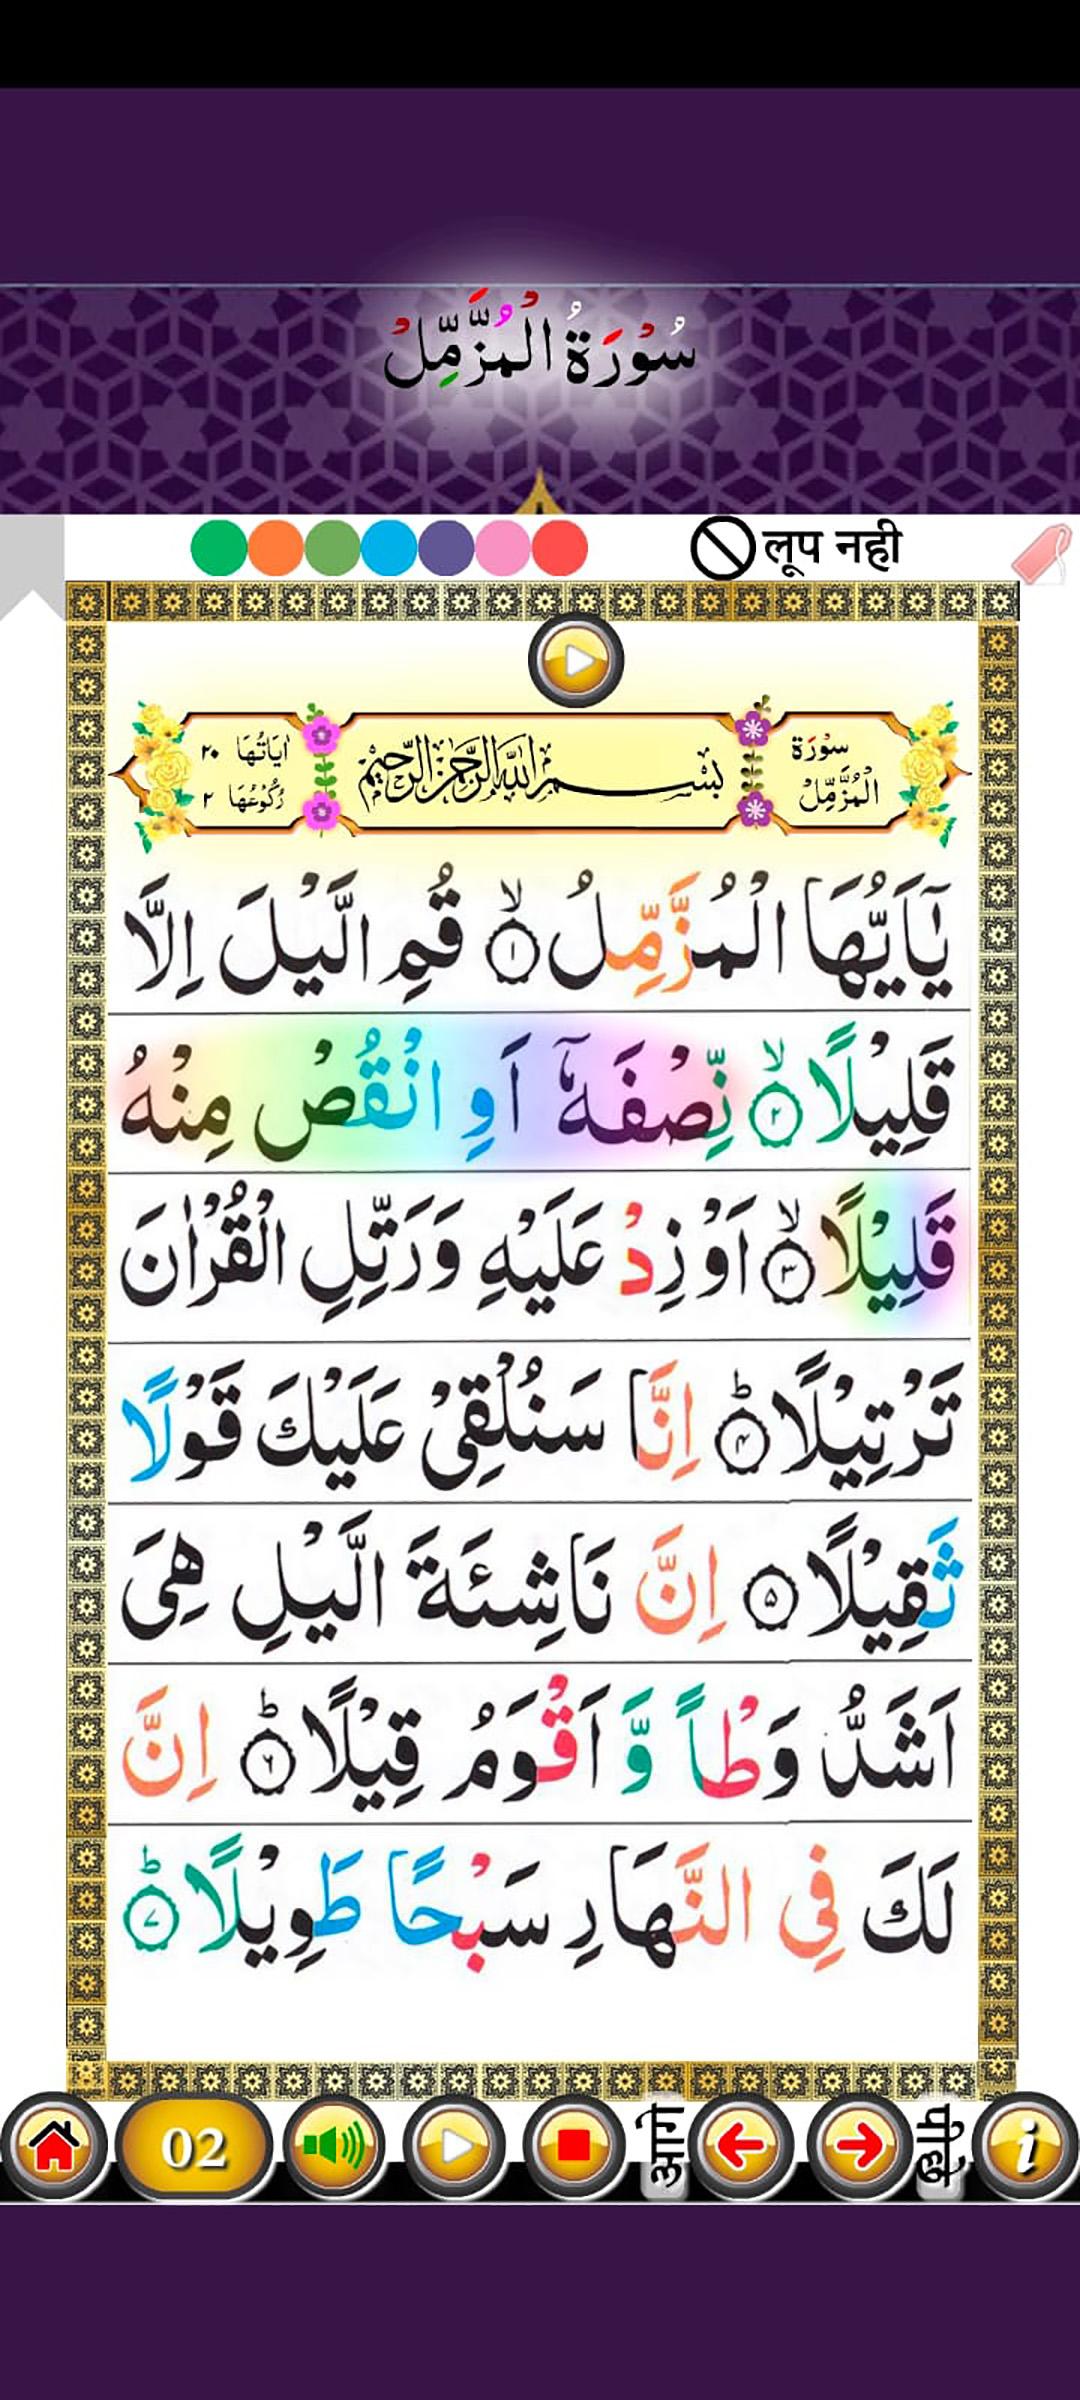 سُوْرَةُ الْمُزَّمِّلْ
लूप नही
سُوْرَة الْمُزَّمِّلْ
بِسْمِ اللّٰهِ الرَّحْمٰنِ الرَّحِيْمِ
اٰيَاتُهَا ٢٠
رُكُوْعُهَا ٢
يٰٓاَيُّهَا الْمُزَّمِّلُ ۙ‏﴿۱﴾ قُمِ الَّيْلَ اِلَّا
قَلِيْلًا ۙ‏﴿۲﴾ نِّصْفَهٗٓ اَوِ انْقُصْ مِنْهُ
قَلِيْلًا ۙ‏﴿۳﴾ اَوْ زِدْ عَلَيْهِ وَرَتِّلِ الْقُرْاٰنَ
تَرْتِيْلًا ؕ‏﴿۴﴾ اِنَّا سَنُلْقِىْ عَلَيْكَ قَوْلًا
ثَقِيْلًا‏﴿۵﴾ اِنَّ نَاشِئَةَ الَّيْلِ هِىَ
اَشَدُّ وَطْاً وَّ اَقْوَمُ قِيْلًا ؕ‏﴿۶﴾ اِنَّ
لَكَ فِى النَّهَارِ سَبْحًا طَوِيْلًا ؕ‏﴿۷﴾
02
आगे
पीछे
i